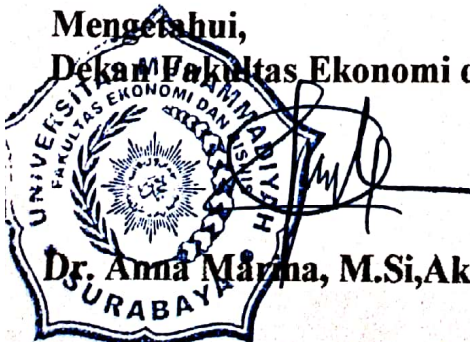 Mengetahui,
Dekan Fakultas Ekonomi d
UNIVERSITAS MUHAMMADIYAH
FAKULTAS EKONOMI DAN BISNIS
SURABAYA
Dr. Anna Marina, M.Si,Ak